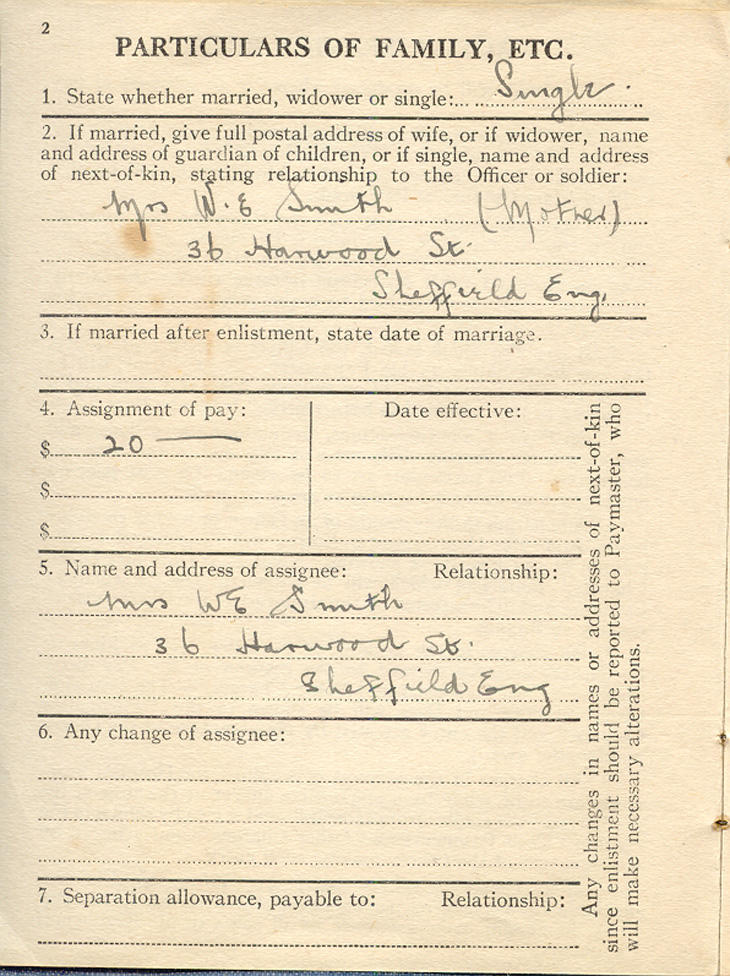 2
PARTICULARS OF FAMILY, ETC.
1. State whether married, widower or single: Single
2. If married, give full postal address of wife, or if widower, name
and address of guardian of children, or if single, name and address
of next-of-kin, stating relationship to the Officer or soldier:
Mrs W.E Smith (Mother)
36 Harwood St.
Sheffield Eng.
3. If married after enlistment, state date of marriage.
4. Assignment of pay: Date effective:
$ 20 —
$
$
5. Name and address of assignee: Relationship:
Mrs WE Smith
36 Harwood St.
Sheffield Eng
6. Any change of assignee:
7. Separation allowance, payable to: Relationship:
Any changes in names or addresses of next-of-kin
since enlistment should be reported to Paymaster, who
will make necessary alterations.